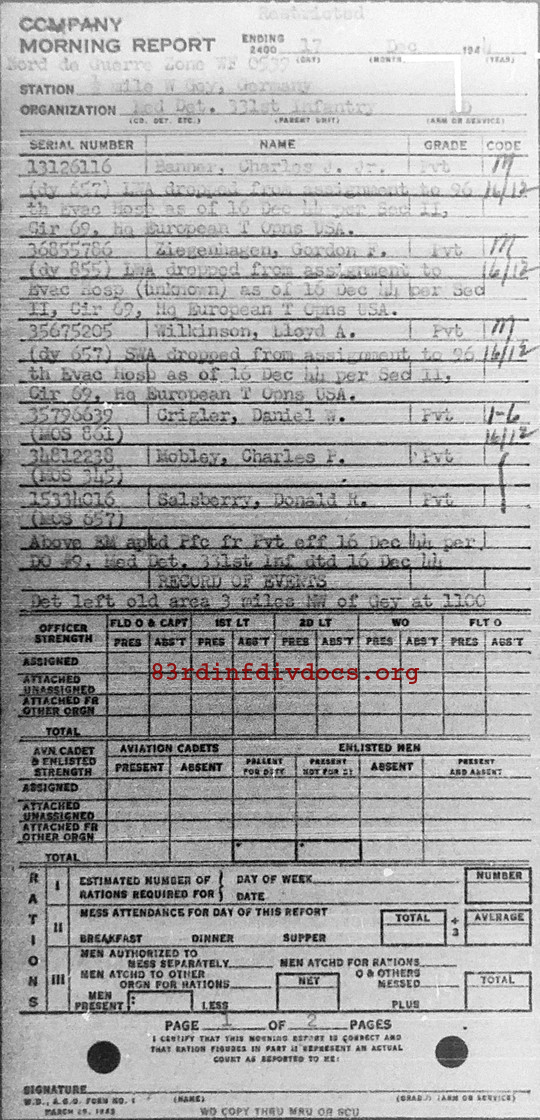 Restricted
COMPANY
MORNING REPORT ENDING 2400 17 Dec 194
(DAY) (MONTH) (YEAR)
Nord de Guerre Zone WF 0539
STATION ½ mile W Gey, Germany
ORGANIZATION Med Det. 331st Infantry
(CO. DET. ETC.) (PARENT UNIT) (ARM OR SERVICE)
SERIAL NUMBER NAME GRADE CODE
13126116 Banner, Charles J. Jr. Pvt M
(dy 657) LWA dropped from assignment to 96 16/12
th Evac Hosp as of 16 Dec 44 per Sec II,
Cir 69, Hq European T Opns USA.
36855786 Ziegenhagen, Gordon F. Pvt M
(dy 855) LWA dropped from assignment to 16/12
Evac Hosp (unknown) as of 16 Dec 44 per Sec
II, Cir 69, Hq European T Opns USA.
35675205 Wilkinson, Lloyd A. Pvt M
(dy 657) SWA dropped from assignment to 96 16/12
th Evac Hosp as of 16 Dec 44 per Sec II,
Cir 69, Hq European T Opns USA.
35796639 Crigler, Daniel W. Pvt 1-6
(MOS 861) 16/12
34812238 Mobley, Charles P. Pvt
(MOS 345)
15334016 Salsberry, Donald R. Pvt
(MOS 657)
Above EM aptd Pfc fr Pvt eff 16 Dec 44 per
DO #9. Med Det. 331st Inf dtd 16 Dec 44
RECORD OF EVENTS
Det left old area 3 miles NW of Gey at 1100
OFFICER STRENGTH FLD O & CAPT 1ST LT 2D LT WO FLT O
PRES ABS'T PRES ABS'T PRES ABS'T PRES ABS'T PRES ABS'T
ASSIGNED
83rdinfdivdocs.org
ATTACHED UNASSIGNED
ATTACHED FR OTHER ORGN
TOTAL
AVN CADET & ENLISTED STRENGTH AVIATION CADETS ENLISTED MEN
PRESENT ABSENT PRESENT FOR DUTY PRESENT NOT FOR DY ABSENT PRESENT AND ABSENT
ASSIGNED
ATTACHED UNASSIGNED
ATTACHED FR OTHER ORGN
TOTAL
RATIONS
I ESTIMATED NUMBER OF RATIONS REQUIRED FOR DAY OF WEEK NUMBER
DATE
II MESS ATTENDANCE FOR DAY OF THIS REPORT TOTAL ÷ 3 AVERAGE
BREAKFAST DINNER SUPPER
III MEN AUTHORIZED TO MESS SEPARATELY MEN ATCHD FOR RATIONS
MEN ATCHD TO OTHER ORGN FOR RATIONS NET O & OTHERS MESSED TOTAL
MEN PRESENT: LESS PLUS
PAGE 1 OF 2 PAGES
I CERTIFY THAT THIS MORNING REPORT IS CORRECT AND
THAT RATION FIGURES IN PART II REPRESENT AN ACTUAL
COUNT AS REPORTED TO ME:
SIGNATURE
W.D., A.G.O. FORM NO. 1 (NAME) (GRADE) (ARM OR SERVICE)
MARCH 25, 1943
WD COPY THRU MRU OR SCU